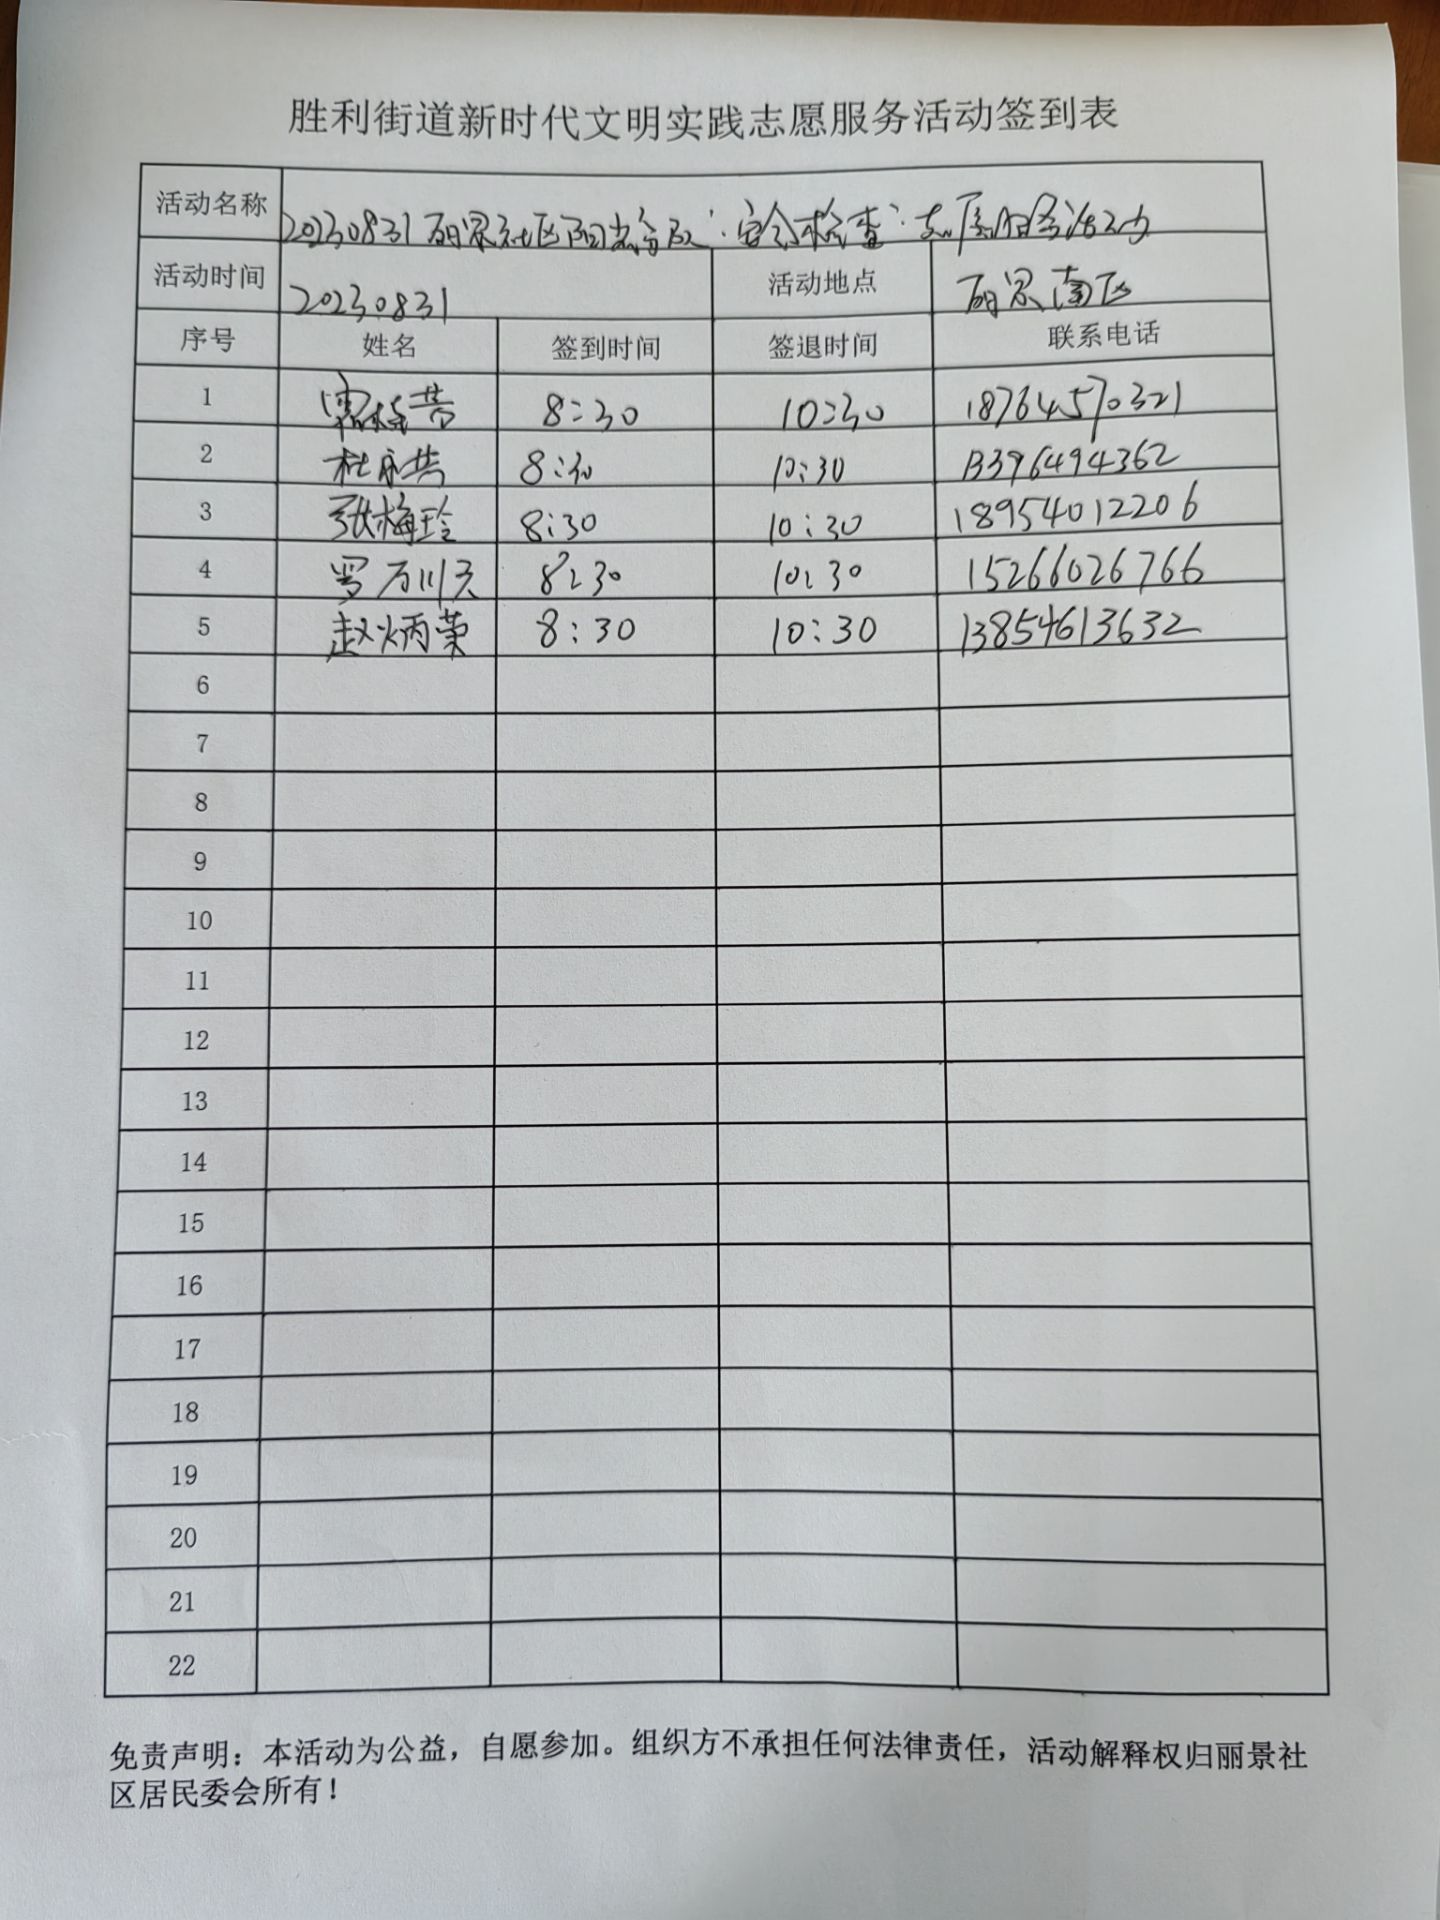 胜利街道新时代文明实践志愿服务活动签到表
活动名称 20230831丽景社区阳光行动“安全检查”志愿服务活动
活动时间 20230831 活动地点 丽景南区
序号 姓名 签到时间 签退时间 联系电话
1 8:30 10:30 18764570321
2 杜永芬 8:30 10:30 13396494362
3 张梅玲 8:30 10:30 18954012206
4 罗 8:30 10:30 15266026766
5 赵炳荣 8:30 10:30 13854613632
6
7
8
9
10
11
12
13
14
15
16
17
18
19
20
21
22
免责声明：本活动为公益，自愿参加。组织方不承担任何法律责任，活动解释权归丽景社
区居民委会所有！